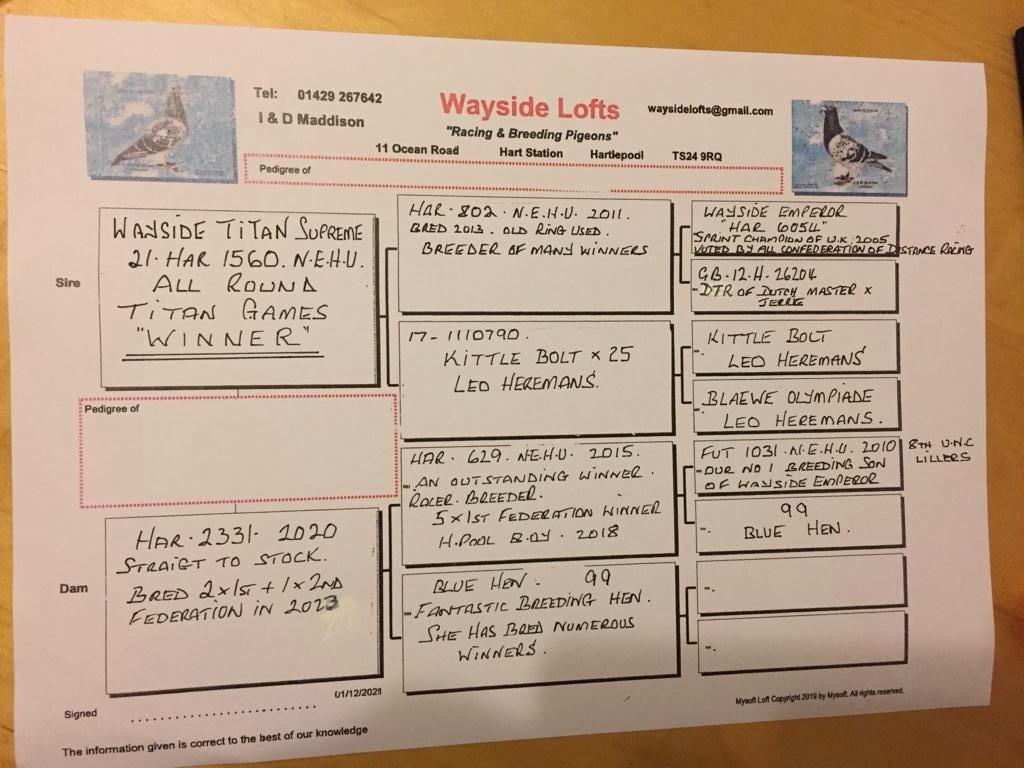 Tel: 01429 267642
I & D Maddison
Wayside Lofts
"Racing & Breeding Pigeons"
waysidelofts@gmail.com
11 Ocean Road Hart Station Hartlepool TS24 9RQ
Pedigree of
Sire
WAYSIDE TITAN SUPREME
21-HAR 1560. N.E.H.U.
ALL ROUND
TITAN GAMES
"WINNER"
HAR-802. N.E.H.U. 2011.
BRED 2013. OLD RING USED.
BREEDER OF MANY WINNERS
WAYSIDE EMPEROR
"HAR 6054"
SPRINT CHAMPION OF U.K. 2005
VOTED BY ALL CONFEDERATION OF DISTANCE RACING
GB-12-H-26204
-DTR OF DUTCH MASTER X
JERRE
17-1110790.
KITTLE BOLT x 25
LEO HEREMANS.
KITTLE BOLT
-. LEO HEREMANS
BLAEWE OLYMPIADE
-. LEO HEREMANS.
Pedigree of
HAR. 629. N.E.H.U. 2015.
-. AN OUTSTANDING WINNER
RACER. BREEDER.
5 x 1ST FEDERATION WINNER
H.POOL B.OY. 2018
FUT 1031. N.E.H.U. 2010
-OUR NO 1 BREEDING SON
OF WAYSIDE EMPEROR
8TH U.N.C
LILLERS
99
-. BLUE HEN.
Dam
HAR-2331- 2020
STRAIGT TO STOCK.
BRED 2x1ST + 1x2ND
FEDERATION IN 2023
BLUE HEN- 99
-. FANTASTIC BREEDING HEN.
SHE HAS BRED NUMEROUS
WINNERS.
-.
-.
01/12/2021
Signed ..........................
Mysoft Loft Copyright 2019 by Mysoft. All rights reserved.
The information given is correct to the best of our knowledge